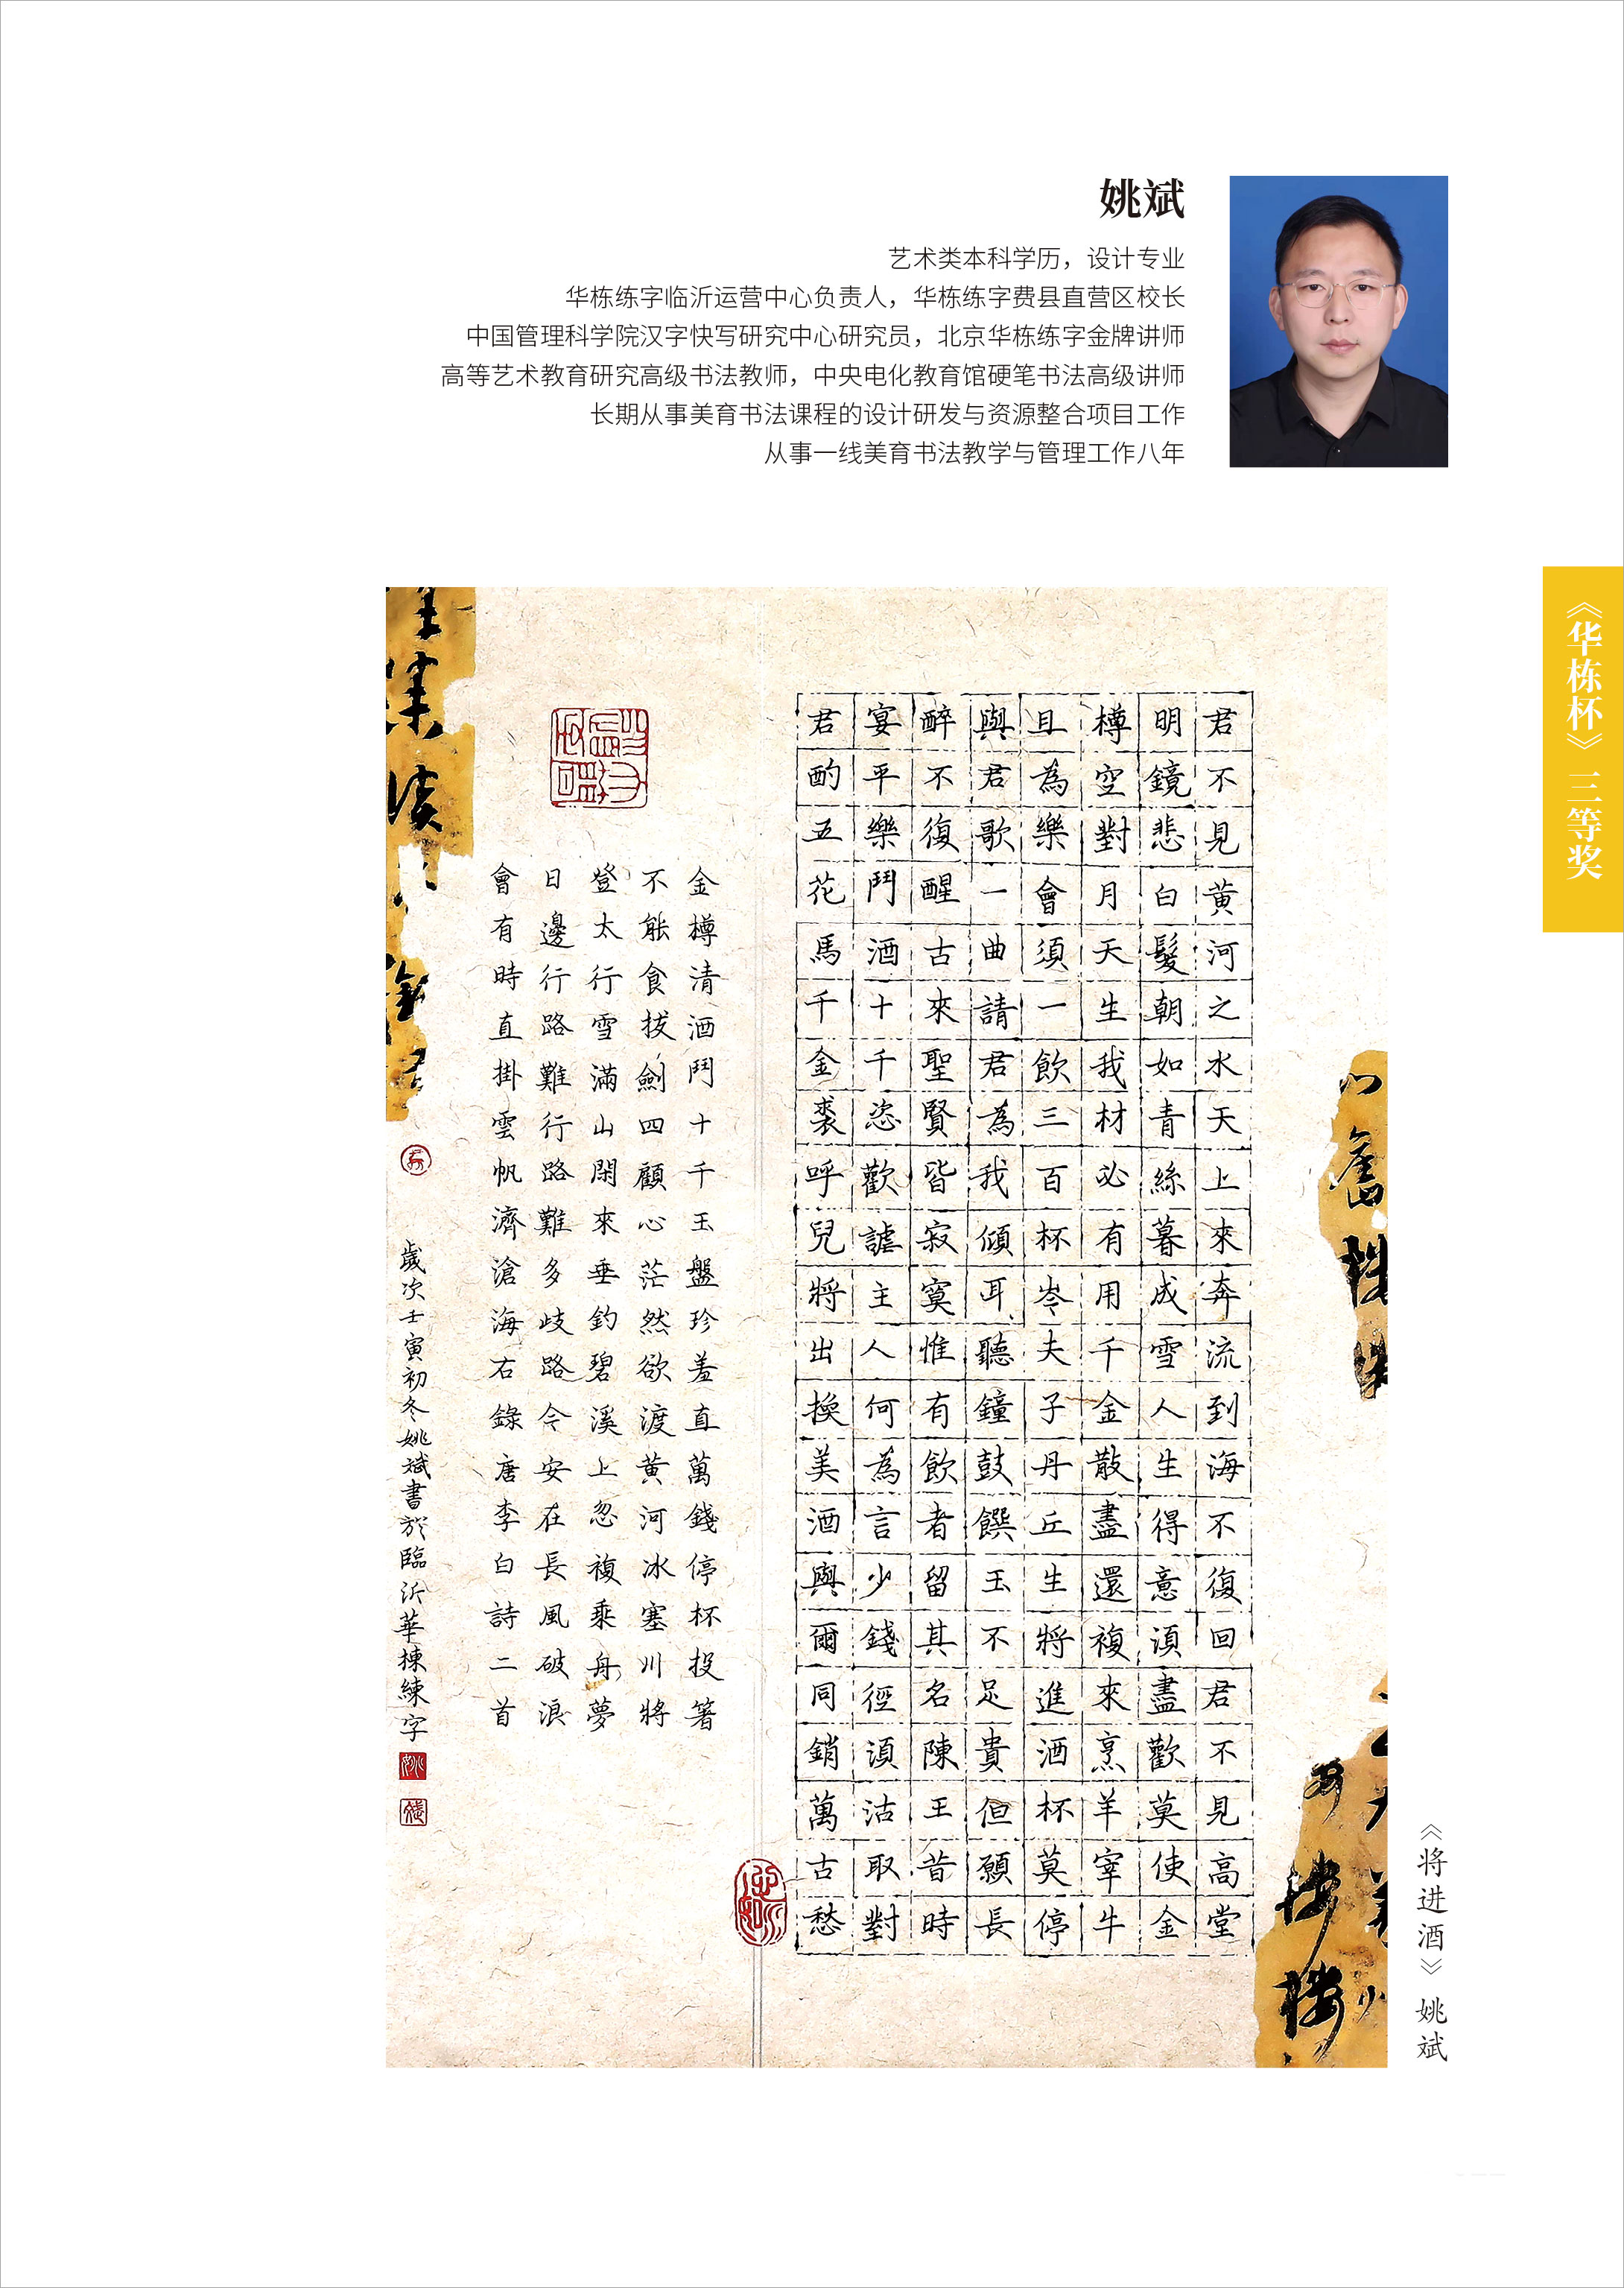 姚斌
艺术类本科学历，设计专业
华栋练字临沂运营中心负责人，华栋练字费县直营区校长
中国管理科学院汉字快写研究中心研究员，北京华栋练字金牌讲师
高等艺术教育研究高级书法教师，中央电化教育馆硬笔书法高级讲师
长期从事美育书法课程的设计研发与资源整合项目工作
从事一线美育书法教学与管理工作八年
《华栋杯》三等奖
君不見黃河之水天上來奔流到海不復回君不見高堂
明鏡悲白髮朝如青絲暮成雪人生得意須盡歡莫使金
樽空對月天生我材必有用千金散盡還複來烹羊宰牛
且為樂會須一飲三百杯岑夫子丹丘生將進酒杯莫停
與君歌一曲請君為我傾耳聽鐘鼓饌玉不足貴但願長
醉不復醒古來聖賢皆寂寞惟有飲者留其名陳王昔時
宴平樂鬥酒十千恣歡謔主人何為言少錢徑須沽取對
君酌五花馬千金裘呼兒將出換美酒與爾同銷萬古愁
金樽清酒鬥十千玉盤珍羞直萬錢停杯投箸
不能食拔劍四顧心茫然欲渡黃河冰塞川將
登太行雪滿山閑來垂釣碧溪上忽複乘舟夢
日邊行路難行路難多歧路今安在長風破浪
會有時直掛雲帆濟滄海右錄唐李白詩二首
歲次壬寅初冬姚斌書於臨沂華棟練字
《将进酒》姚斌